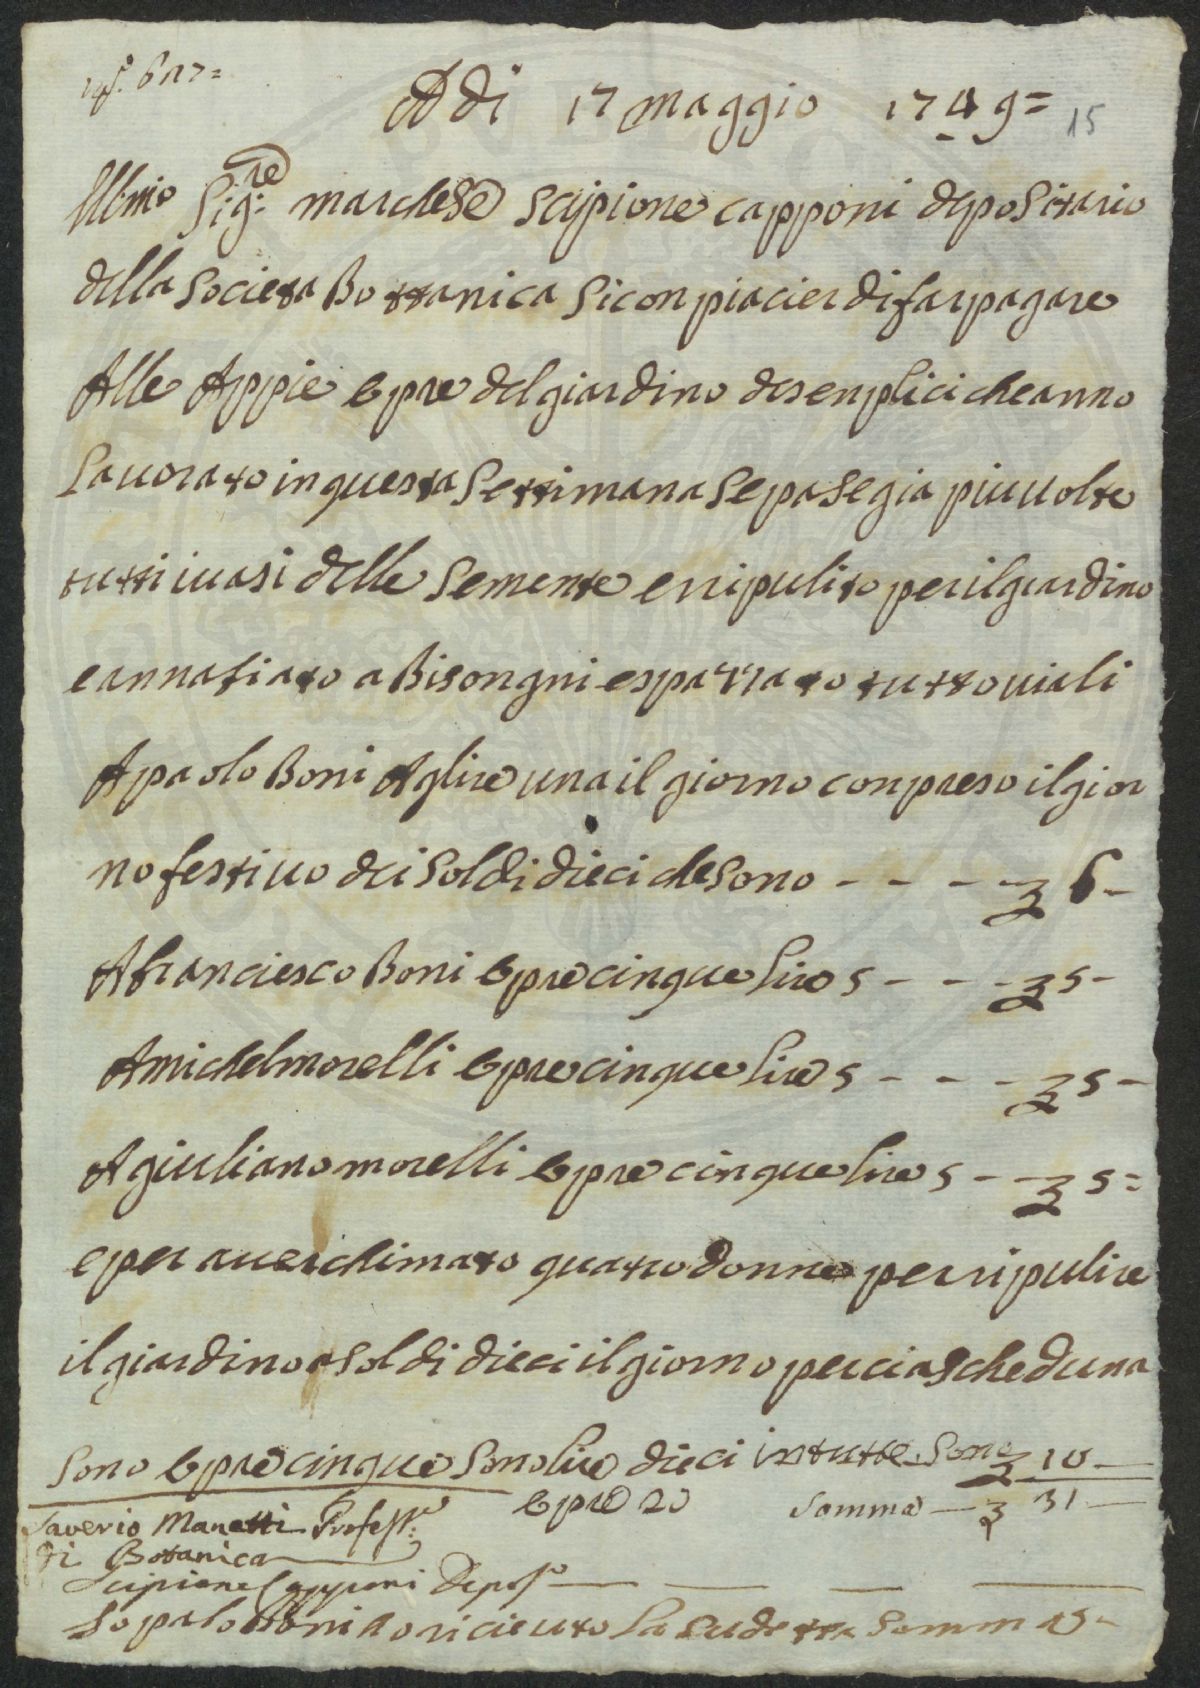 A di 17 maggio 1749=
15
Ill:mo Sig:re marchese scipione capponi depositario
della societa Bottanica si con piacier di far pagare
Alle Appie opre del giardino de senplici che anno
lavorato in questa settimana se pasegia piu uolte
tutti i uasi delle semente e ripulito per il giardino
e annafiato a Bisongni e spazzato tutto uiali
A paolo Boni A lire una il giorno conpreso il gior
no festivo dei soldi dieci che sono - - - - 6 -
A franciesco Boni opre cinque lire 5 - - - - 5 -
A michel morelli opre cinque lire 5 - - - - 5 -
A giuliano morelli opre cinque lire 5 - - 5 =
e per aver chimato quatro donne per ripulire
il giardino a soldi dieci il giorno per ciascheduna
sono opre cinque sono lire dieci in tutte sono 10 -
opre 20 somma — 31 —
Saverio Manetti Profess:e
di Botanica
Scipione Capponi Depos:o
Io palo Boni o riceuto la sudetta somma